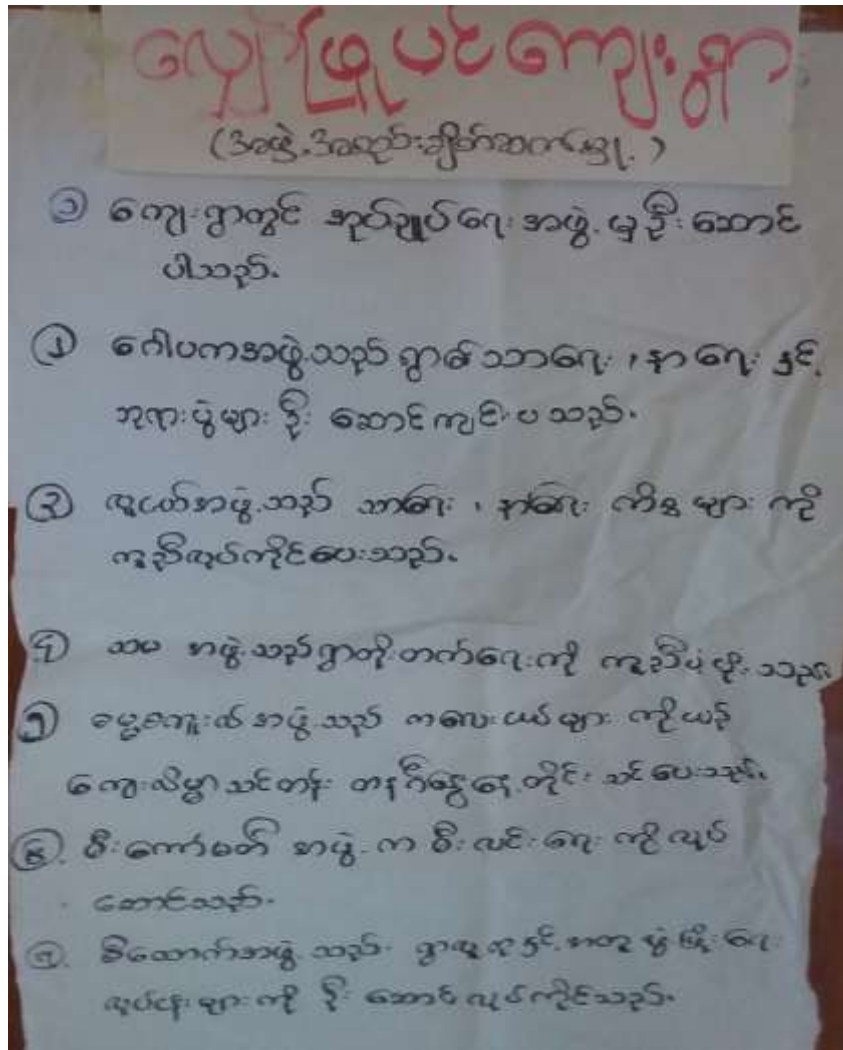 လျှော်ဖြူပင်ကျေးရွာ
(အဖွဲ့အစည်းချိတ်ဆက်မှု့)
၁ ကျေးရွာတွင် အုပ်ချုပ်ရေးအဖွဲ့မှ ဦးဆောင်
ပါသည်။
၂ ဂေါပကအဖွဲ့သည် ရွာ၏သာရေး ၊ နာရေး နှင့်
ဘုရားပွဲများ ဦးဆောင်ကျင်းပသည်။
၃ လူငယ်အဖွဲ့သည် သာရေး ၊ နာရေး ကိစ္စများ ကို
ကူညီလုပ်ကိုင်ပေးသည်။
၄ ထမ အဖွဲ့သည် ရွာတိုးတက်ရေးကို ကူညီပံ့ပိုးသည်။
၅ အဖွဲ့သည် ကလေးငယ်များ ကိုယဉ်
ကျေးလိမ္မာသင်တန်း တနင်္ဂနွေနေ့တိုင်း သင်ပေးသည်။
၆. မီးကော်မတီ အဖွဲ့က မီးလင်းရေး ကိုလုပ်
ဆောင်သည်။
၇. စီထောက်အဖွဲ့သည် ရွာလူထုနှင့်အတူ ဖွံ့ဖြိုးရေး
လုပ်ငန်းများကို ဦးဆောင်လုပ်ကိုင်သည်။